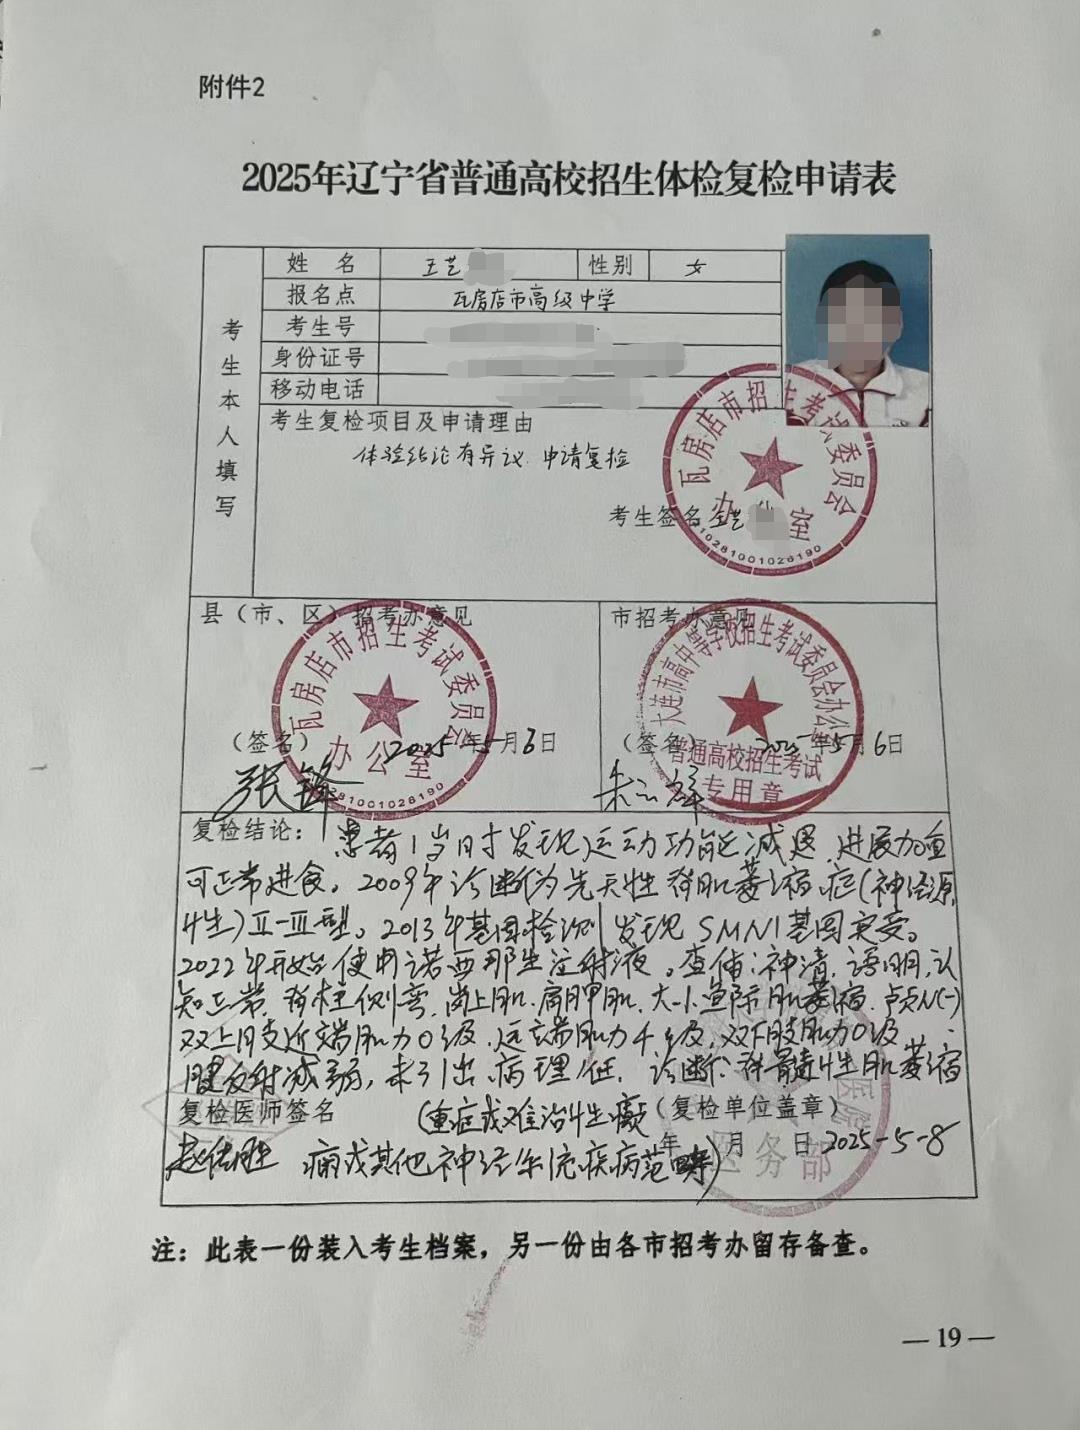 附件2
2025年辽宁省普通高校招生体检复检申请表
考生本人填写
姓 名 王艺 性别 女
报名点 瓦房店市高级中学
考生号
身份证号
移动电话
考生复检项目及申请理由
体验结论有异议.申请复检
考生签名 王艺
瓦房店市招生考试委员会
办公室
县（市、区）招考办意见
瓦房店市招生考试委员会
办公室
（签名） 2025年5月6日
张锋
市招考办意见
大连市高中等学校招生考试委员会办公室
普通高校招生考试
专用章
（签名） 2025年5月6日
复检结论：患者1岁时发现运动功能减退.进展加重
可正常进食。2009年诊断为先天性脊肌萎缩症(神经源
性)Ⅱ-Ⅲ型。2013年基因检测发现SMN1基因突变。
2022年开始使用诺西那生注射液。查体:神清,语明,认
知正常,脊柱侧弯,岗上肌.肩胛肌.大小鱼际肌萎缩.颅N(-)
双上肢近端肌力0级,远端肌力4级,双下肢肌力0级,
腱反射减弱,未引出病理征.诊断:脊髓性肌萎缩
复检医师签名 (重症或难治性癫 (复检单位盖章)
痫或其他神经系统疾病范畴) 年 月 日 2025-5-8
医务部
注：此表一份装入考生档案，另一份由各市招考办留存备查。
— 19 —